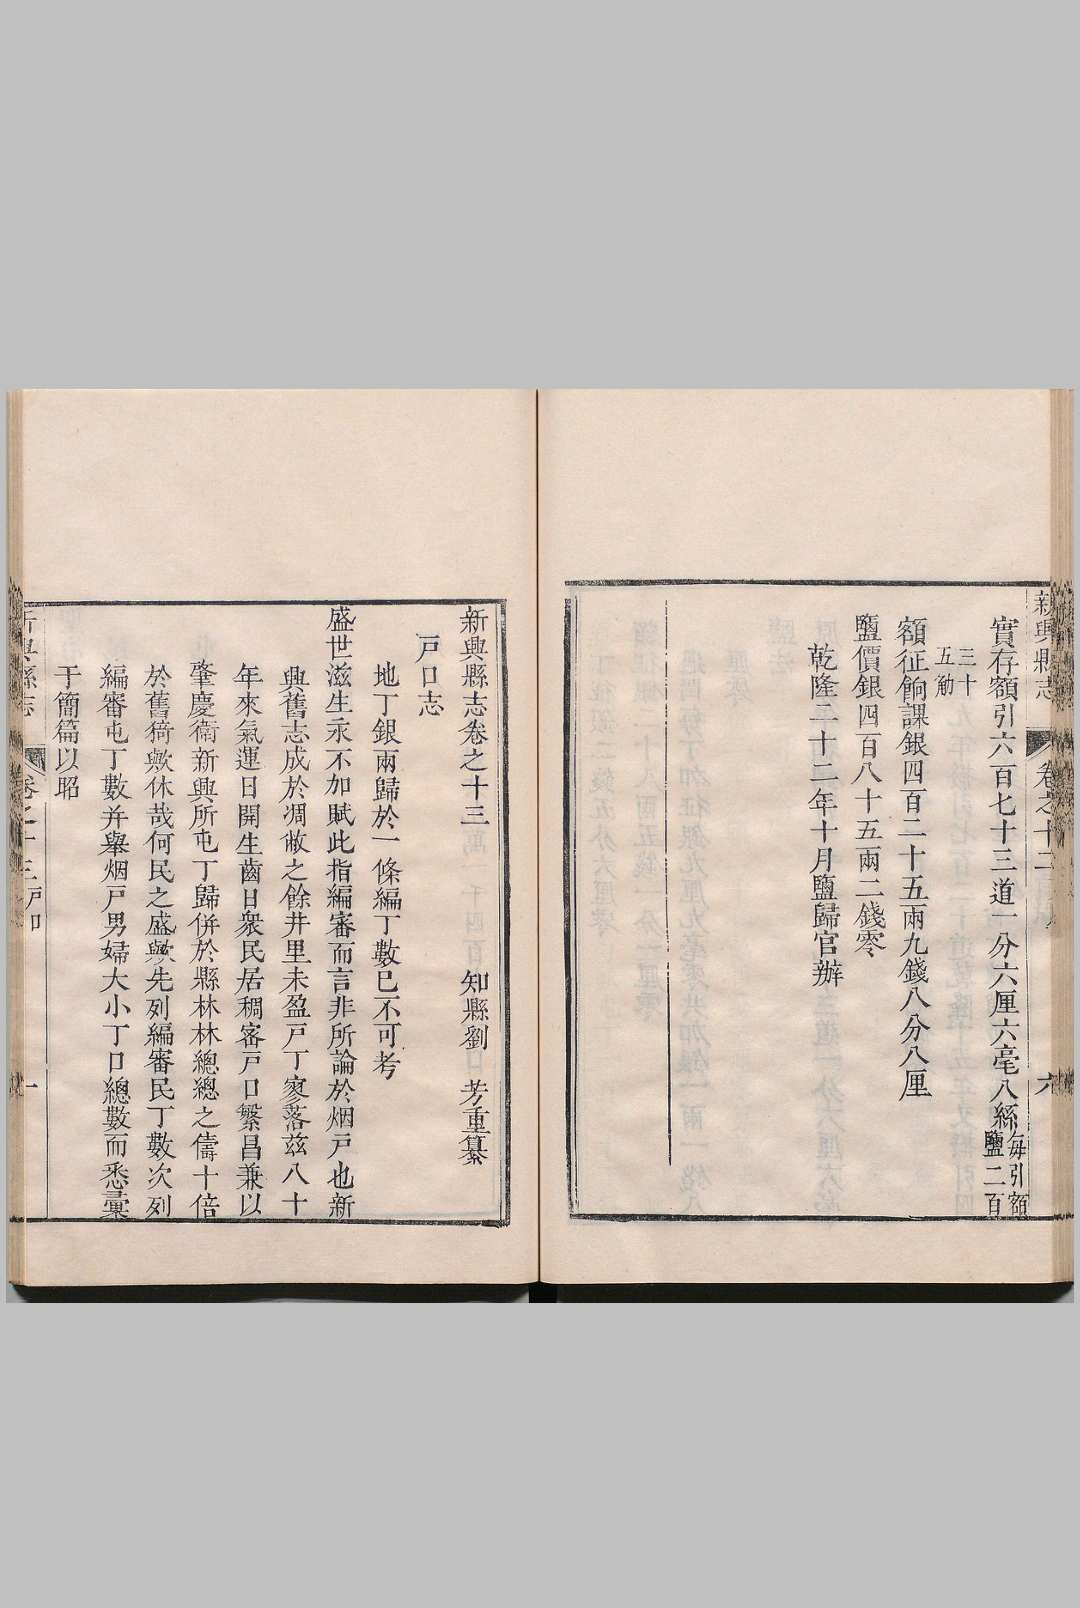 新興縣志
卷之十二
六
實存額引六百七十三道一分六厘六毫八絲每引額鹽二百
三十五觔
額征餉課銀四百二十五兩九錢八分八厘
鹽價銀四百八十五兩二錢零
乾隆二十二年十月鹽歸官辦
新興縣志卷之十三 知縣劉 芳重纂
戸口志
地丁銀兩歸於一條編丁數已不可考
盛世滋生永不加賦此指編審而言非所論於烟戸也新
興舊志成於凋敝之餘井里未盈戸丁寥落茲八十
年來氣運日開生齒日衆民居稠密戸口繁昌兼以
肇慶衛新興所屯丁歸併於縣林林總總之儔十倍
於舊猗歟休哉何民之盛歟先列編審民丁數次列
編審屯丁數并舉烟戸男婦大小丁口總數而悉彙
于簡篇以昭
新興縣志
卷之十三
戸口
一